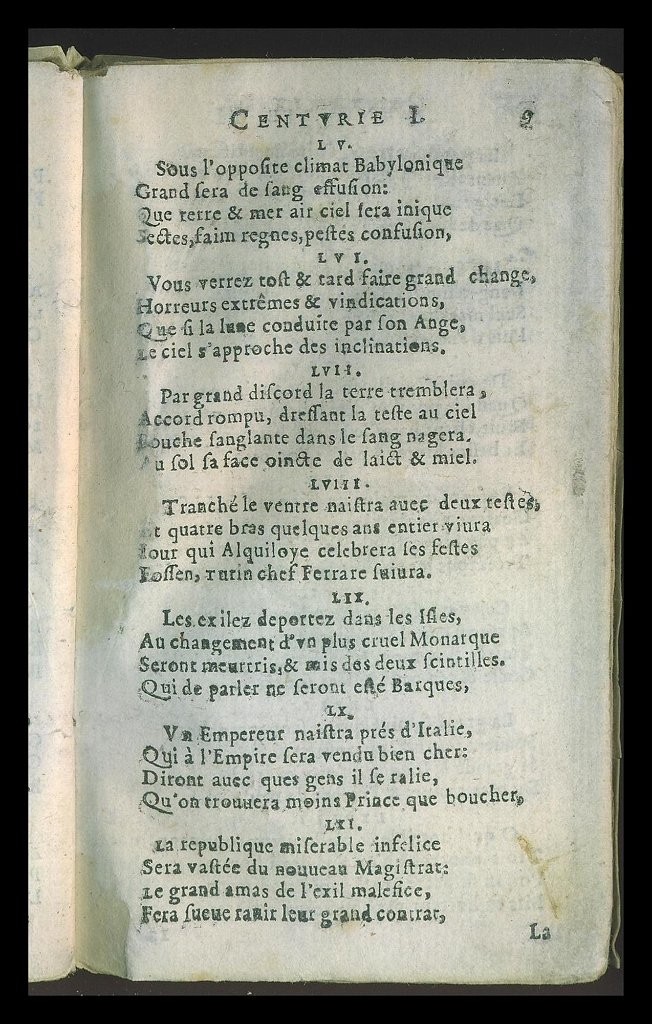 CENTVRIE I. 9
LV.
Sous l'opposite climat Babylonique
Grand sera de sang effusion:
Que terre & mer air ciel sera inique
Sectes, faim regnes, pestes confusion,
LVI.
Vous verrez tost & tard faire grand change,
Horreurs extrêmes & vindications,
Que si la lune conduite par son Ange,
Le ciel s'approche des inclinations.
LVII.
Par grand discord la terre tremblera,
Accord rompu, dressant la teste au ciel
Bouche sanglante dans le sang nagera.
Au sol sa face oincte de laict & miel.
LVIII.
Tranché le ventre naistra auec deux testes,
Et quatre bras quelques ans entier viura
Iour qui Alquiloye celebrera ses festes
Fossen, Turin chef Ferrare suiura.
LIX.
Les exilez deportez dans les Isles,
Au changement d'vn plus cruel Monarque
Seront meurtris, & mis des deux scintilles.
Qui de parler ne seront esté Barques,
LX.
Vn Empereur naistra prés d'Italie,
Qui à l'Empire sera vendu bien cher:
Diront auec ques gens il se ralie,
Qu'on trouuera moins Prince que boucher,
LXI.
La republique miserable infelice
Sera vastée du nouueau Magistrat:
Le grand amas de l'exil malefice,
Fera sueue rauir leur grand contrat,
La